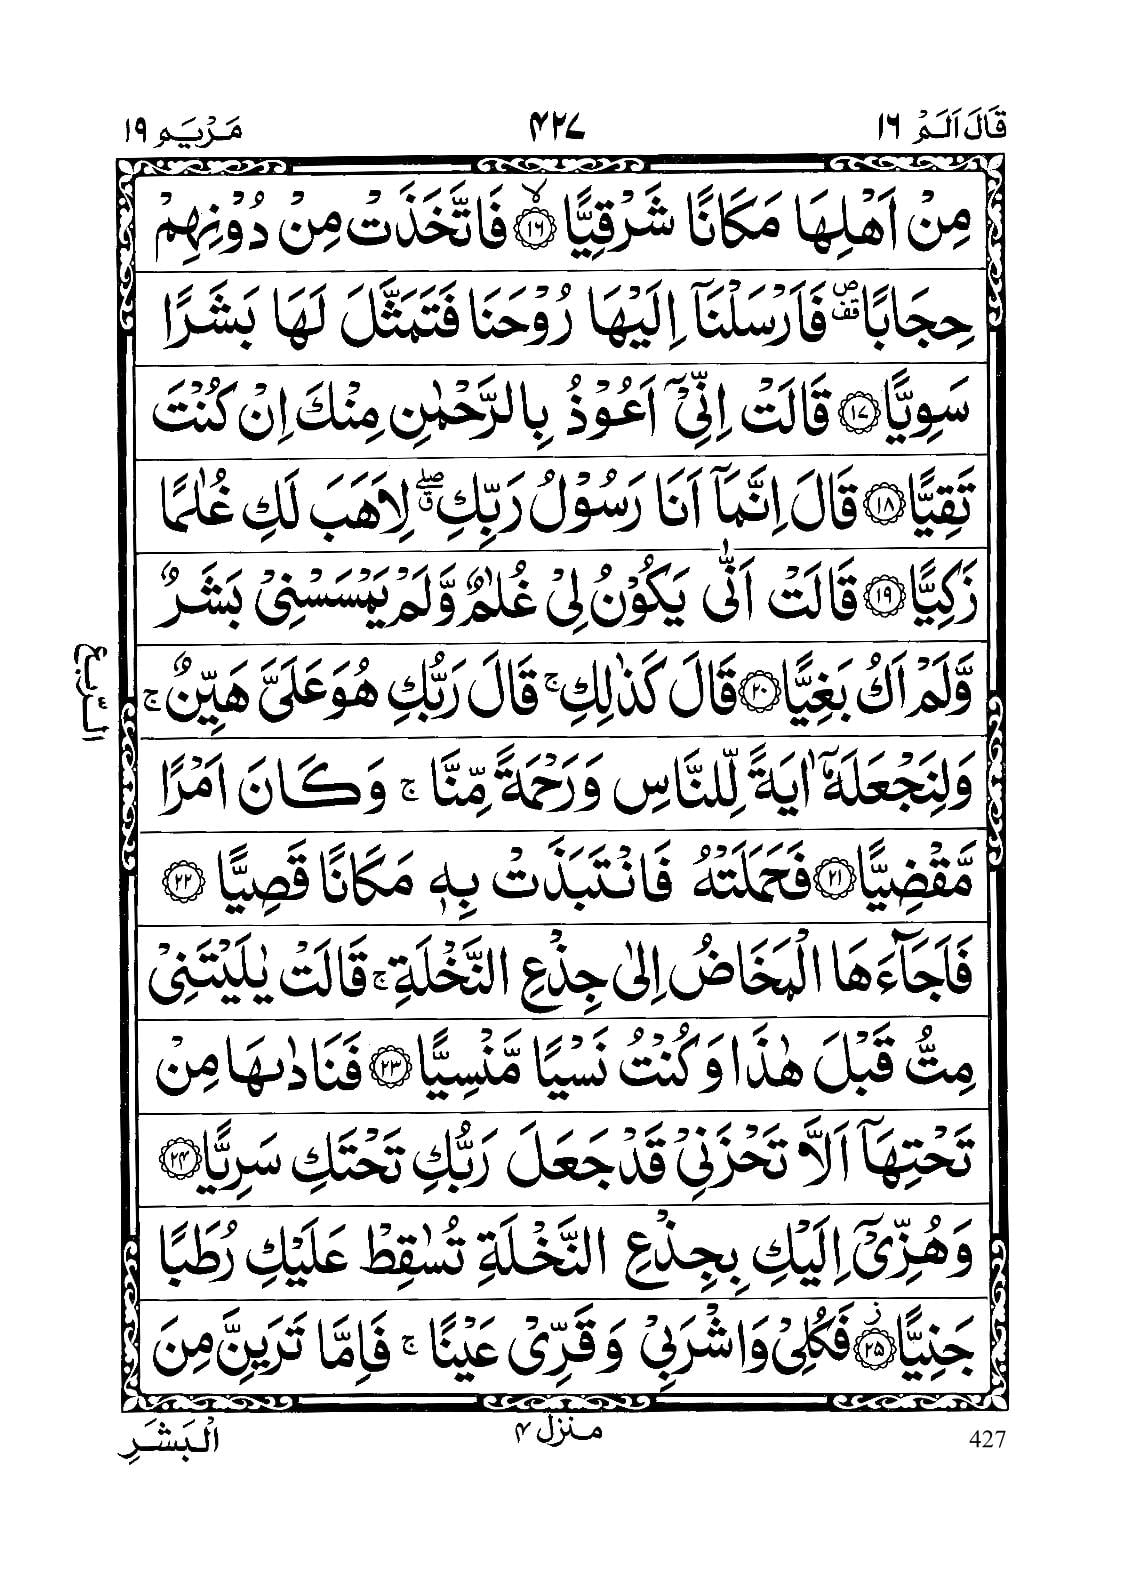 قَالَ اَلَمْ ١٦ ۴۲۷ مَرْيَم ١٩
مِنْ اَهْلِهَا مَكَانًا شَرْقِيًّا ۙ﴿١٦﴾ فَاتَّخَذَتْ مِنْ دُوْنِهِمْ
حِجَابًا ۪ۖ فَاَرْسَلْنَاۤ اِلَيْهَا رُوْحَنَا فَتَمَثَّلَ لَهَا بَشَرًا
سَوِيًّا ﴿١٧﴾ قَالَتْ اِنِّيْۤ اَعُوْذُ بِالرَّحْمٰنِ مِنْكَ اِنْ كُنْتَ
تَقِيًّا ﴿١٨﴾ قَالَ اِنَّمَاۤ اَنَا رَسُوْلُ رَبِّكِ ۖق لِاَهَبَ لَكِ غُلٰمًا
زَكِيًّا ﴿١٩﴾ قَالَتْ اَنّٰى يَكُوْنُ لِيْ غُلٰمٌ وَّلَمْ يَمْسَسْنِيْ بَشَرٌ
وَّلَمْ اَكُ بَغِيًّا ﴿٢٠﴾ قَالَ كَذٰلِكِ ۚ قَالَ رَبُّكِ هُوَ عَلَيَّ هَيِّنٌ ۚ
وَلِنَجْعَلَهٗۤ اٰيَةً لِّلنَّاسِ وَرَحْمَةً مِّنَّا ۚ وَكَانَ اَمْرًا
مَّقْضِيًّا ﴿٢١﴾ فَحَمَلَتْهُ فَانْتَبَذَتْ بِهٖ مَكَانًا قَصِيًّا ﴿٢٢﴾
فَاَجَآءَهَا الْمَخَاضُ اِلٰى جِذْعِ النَّخْلَةِ ۚ قَالَتْ يٰلَيْتَنِيْ
مِتُّ قَبْلَ هٰذَا وَكُنْتُ نَسْيًا مَّنْسِيًّا ﴿٢٣﴾ فَنَادٰىهَا مِنْ
تَحْتِهَاۤ اَلَّا تَحْزَنِيْ قَدْ جَعَلَ رَبُّكِ تَحْتَكِ سَرِيًّا ﴿٢۴﴾
وَهُزِّيْۤ اِلَيْكِ بِجِذْعِ النَّخْلَةِ تُسٰقِطْ عَلَيْكِ رُطَبًا
جَنِيًّا ﴿٢۵﴾ۚز فَكُلِيْ وَاشْرَبِيْ وَقَرِّيْ عَيْنًا ۚ فَاِمَّا تَرَيِنَّ مِنَ
الرّبع
427 منزل ۴ الْبَشَرِ